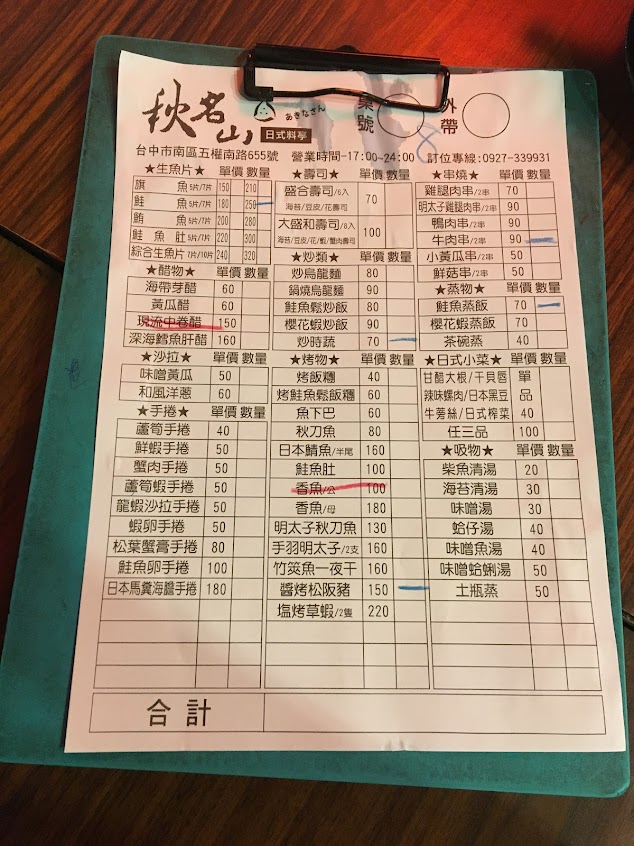 秋名山
あきなさん
日式料亭
桌號
外帶
8
台中市南區五權南路655號 營業時間-17:00~24:00 訂位專線:0927-339931
★生魚片★ 單價 數量
旗魚5片/7片 150 210
鮭魚5片/7片 180 250
鮪魚5片/7片 200 280
鮭魚肚5片/7片 220 300
綜合生魚片7片/10片 240 320
★醋物★ 單價 數量
海帶芽醋 60
黃瓜醋 60
現流中卷醋 150
深海鱈魚肝醋 160
★沙拉★ 單價 數量
味噌黃瓜 50
和風洋蔥 60
★手捲★ 單價 數量
蘆筍手捲 40
鮮蝦手捲 50
蟹肉手捲 50
蘆筍蝦手捲 50
龍蝦沙拉手捲 50
蝦卵手捲 50
松葉蟹膏手捲 80
鮭魚卵手捲 100
日本馬糞海膽手捲 180
★壽司★ 單價 數量
盛合壽司/6入 70
海苔/豆皮/花壽司
大盛和壽司/8入 100
海苔/豆皮/花/蝦/蟹肉壽司
★炒類★ 單價 數量
炒烏龍麵 80
鍋燒烏龍麵 90
鮭魚鬆炒飯 80
櫻花蝦炒飯 90
炒時蔬 70
★烤物★ 單價 數量
烤飯糰 40
烤鮭魚鬆飯糰 60
魚下巴 60
秋刀魚 80
日本鯖魚/半尾 160
鮭魚肚 100
香魚/公 100
香魚/母 180
明太子秋刀魚 130
手羽明太子/2支 160
竹筴魚一夜干 160
醬烤松阪豬 150
塩烤草蝦/2隻 220
★串燒★ 單價 數量
雞腿肉串/2串 70
明太子雞腿肉串/2串 90
鴨肉串/2串 90
牛肉串/2串 90
小黃瓜串/2串 50
鮮菇串/2串 50
★蒸物★ 單價 數量
鮭魚蒸飯 70
櫻花蝦蒸飯 70
茶碗蒸 40
★日式小菜★ 單價 數量
甘醋大根/干貝唇 單
辣味螺肉/日本黑豆 品
牛蒡絲/日式榨菜 40
任三品 100
★吸物★ 單價 數量
柴魚清湯 20
海苔清湯 30
味噌湯 30
蛤仔湯 40
味噌魚湯 40
味噌蛤蜊湯 50
土瓶蒸 50
合計